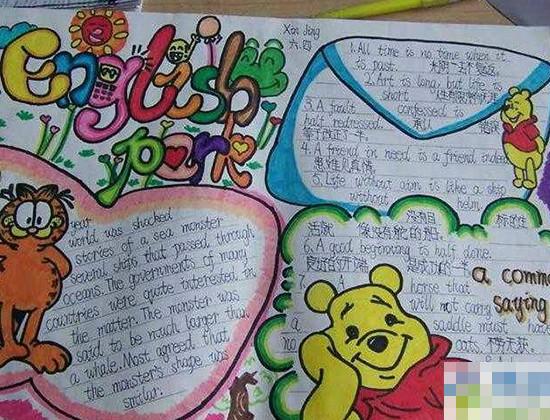 English
park
Xin Jing
六.四
1. All time is no time when it
is past.
2. Art is long, but life is
short.
3. A fault confessed is
half redressed. 承认
等于改正了一半.
4. A friend in need is a friend indeed
患难见真情.
5. Life without aim is like a ship
without helm.
没有目标的生
活就像没有舵的船.
6. A good beginning is half done.
良好的开端是成功的一半
7. A horse that
will not carry
saddle must have
no oats. 不劳无获.
a comm
saying
year
world was shocked
stories of a sea monster
several ships that passed through
oceans. The governments of many
countries were quite interested in
the matter. The monster was
said to be much larger than
a whale. Most agreed that
the monster's shape was
similar.